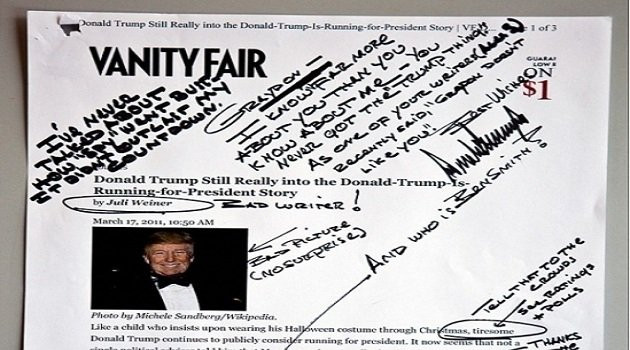 Donald Trump Still Really into the Donald-Trump-Is-Running-for-President Story | VF
1 of 3
VANITY FAIR
GUARAN
LOW R
ON
$1
I'VE NEVER
TALKED ABOUT
HOW "SPY" WENT BUST
IT DIDN'T OUTLAST MY
COUNTDOWN.
GRAYDON —
I KNOW FAR MORE
ABOUT YOU THAN YOU
KNOW ABOUT ME — YOU
NEVER GOT THE "TRUMP THING"
AS ONE OF YOUR WRITERS
RECENTLY SAID, "GRAYDON DOESN'T
LIKE YOU".
BEST WISHES
Donald Trump Still Really into the Donald-Trump-Is-
Running-for-President Story
by Juli Weiner
BAD WRITER!
March 17, 2011, 10:50 AM
BAD PICTURE
(NO SURPRISE)
AND WHO IS BEN SMITH?
Photo by Michele Sandberg/Wikipedia.
TELL THAT TO THE
CROWDS
RATINGS
+ POLLS
Like a child who insists upon wearing his Halloween costume through Christmas, tiresome
Donald Trump continues to publicly consider running for president. It now seems that not a
THANKS